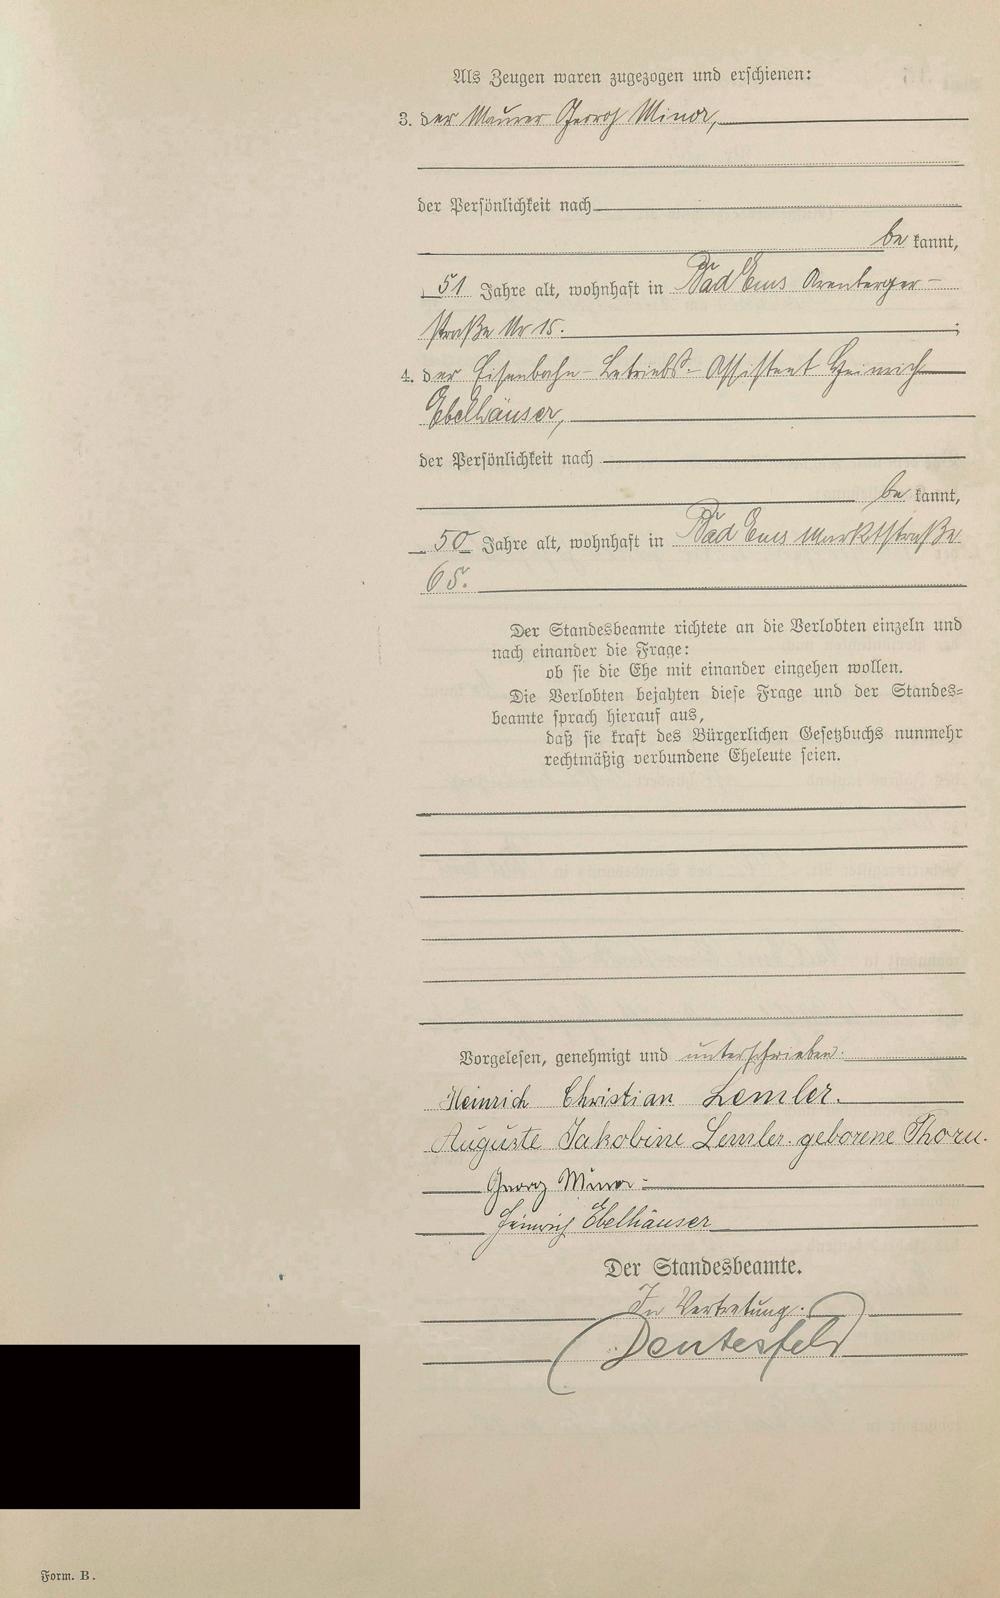 Als Zeugen waren zugezogen und erschienen:
3. der Maurer Georg Minor,
der Persönlichkeit nach
be kannt,
51 Jahre alt, wohnhaft in Bad Ems Arenberger-
straße Nr 15. ;
4. der Eisenbahn-Betriebs-Assistent Heinrich
Ebelhäuser,
der Persönlichkeit nach
be kannt,
50 Jahre alt, wohnhaft in Bad Ems Marktstraße
65.
Der Standesbeamte richtete an die Verlobten einzeln und
nach einander die Frage:
ob sie die Ehe mit einander eingehen wollen.
Die Verlobten bejahten diese Frage und der Standes=
beamte sprach hierauf aus,
daß sie kraft des Bürgerlichen Gesetzbuchs nunmehr
rechtmäßig verbundene Eheleute seien.
Vorgelesen, genehmigt und unterschrieben:
Heinrich Christian Lemler.
Auguste Jakobine Lemler geborene Thorn.
Georg Minor
Heinrich Ebelhäuser
Der Standesbeamte.
In Vertretung.
Form. B.